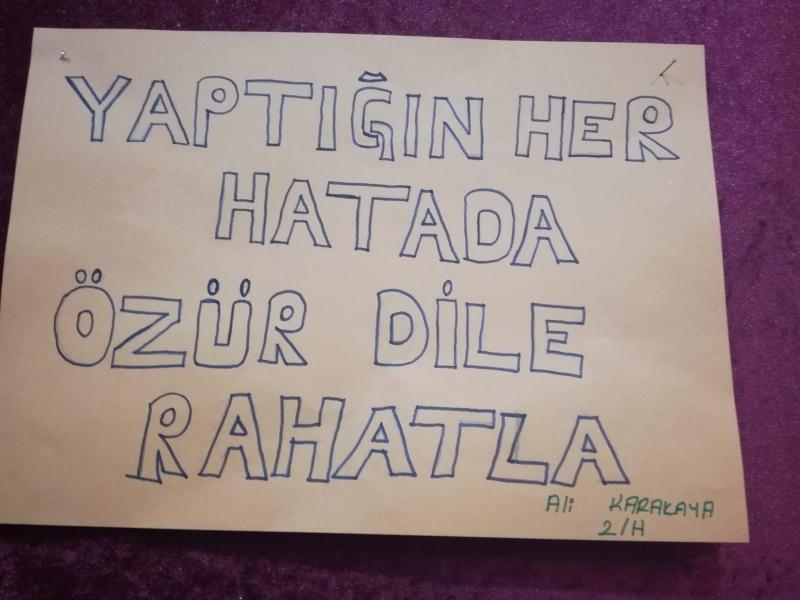 YAPTIĞIN HER
HATADA
ÖZÜR DİLE
RAHATLA
Ali KARAKAYA
2/H